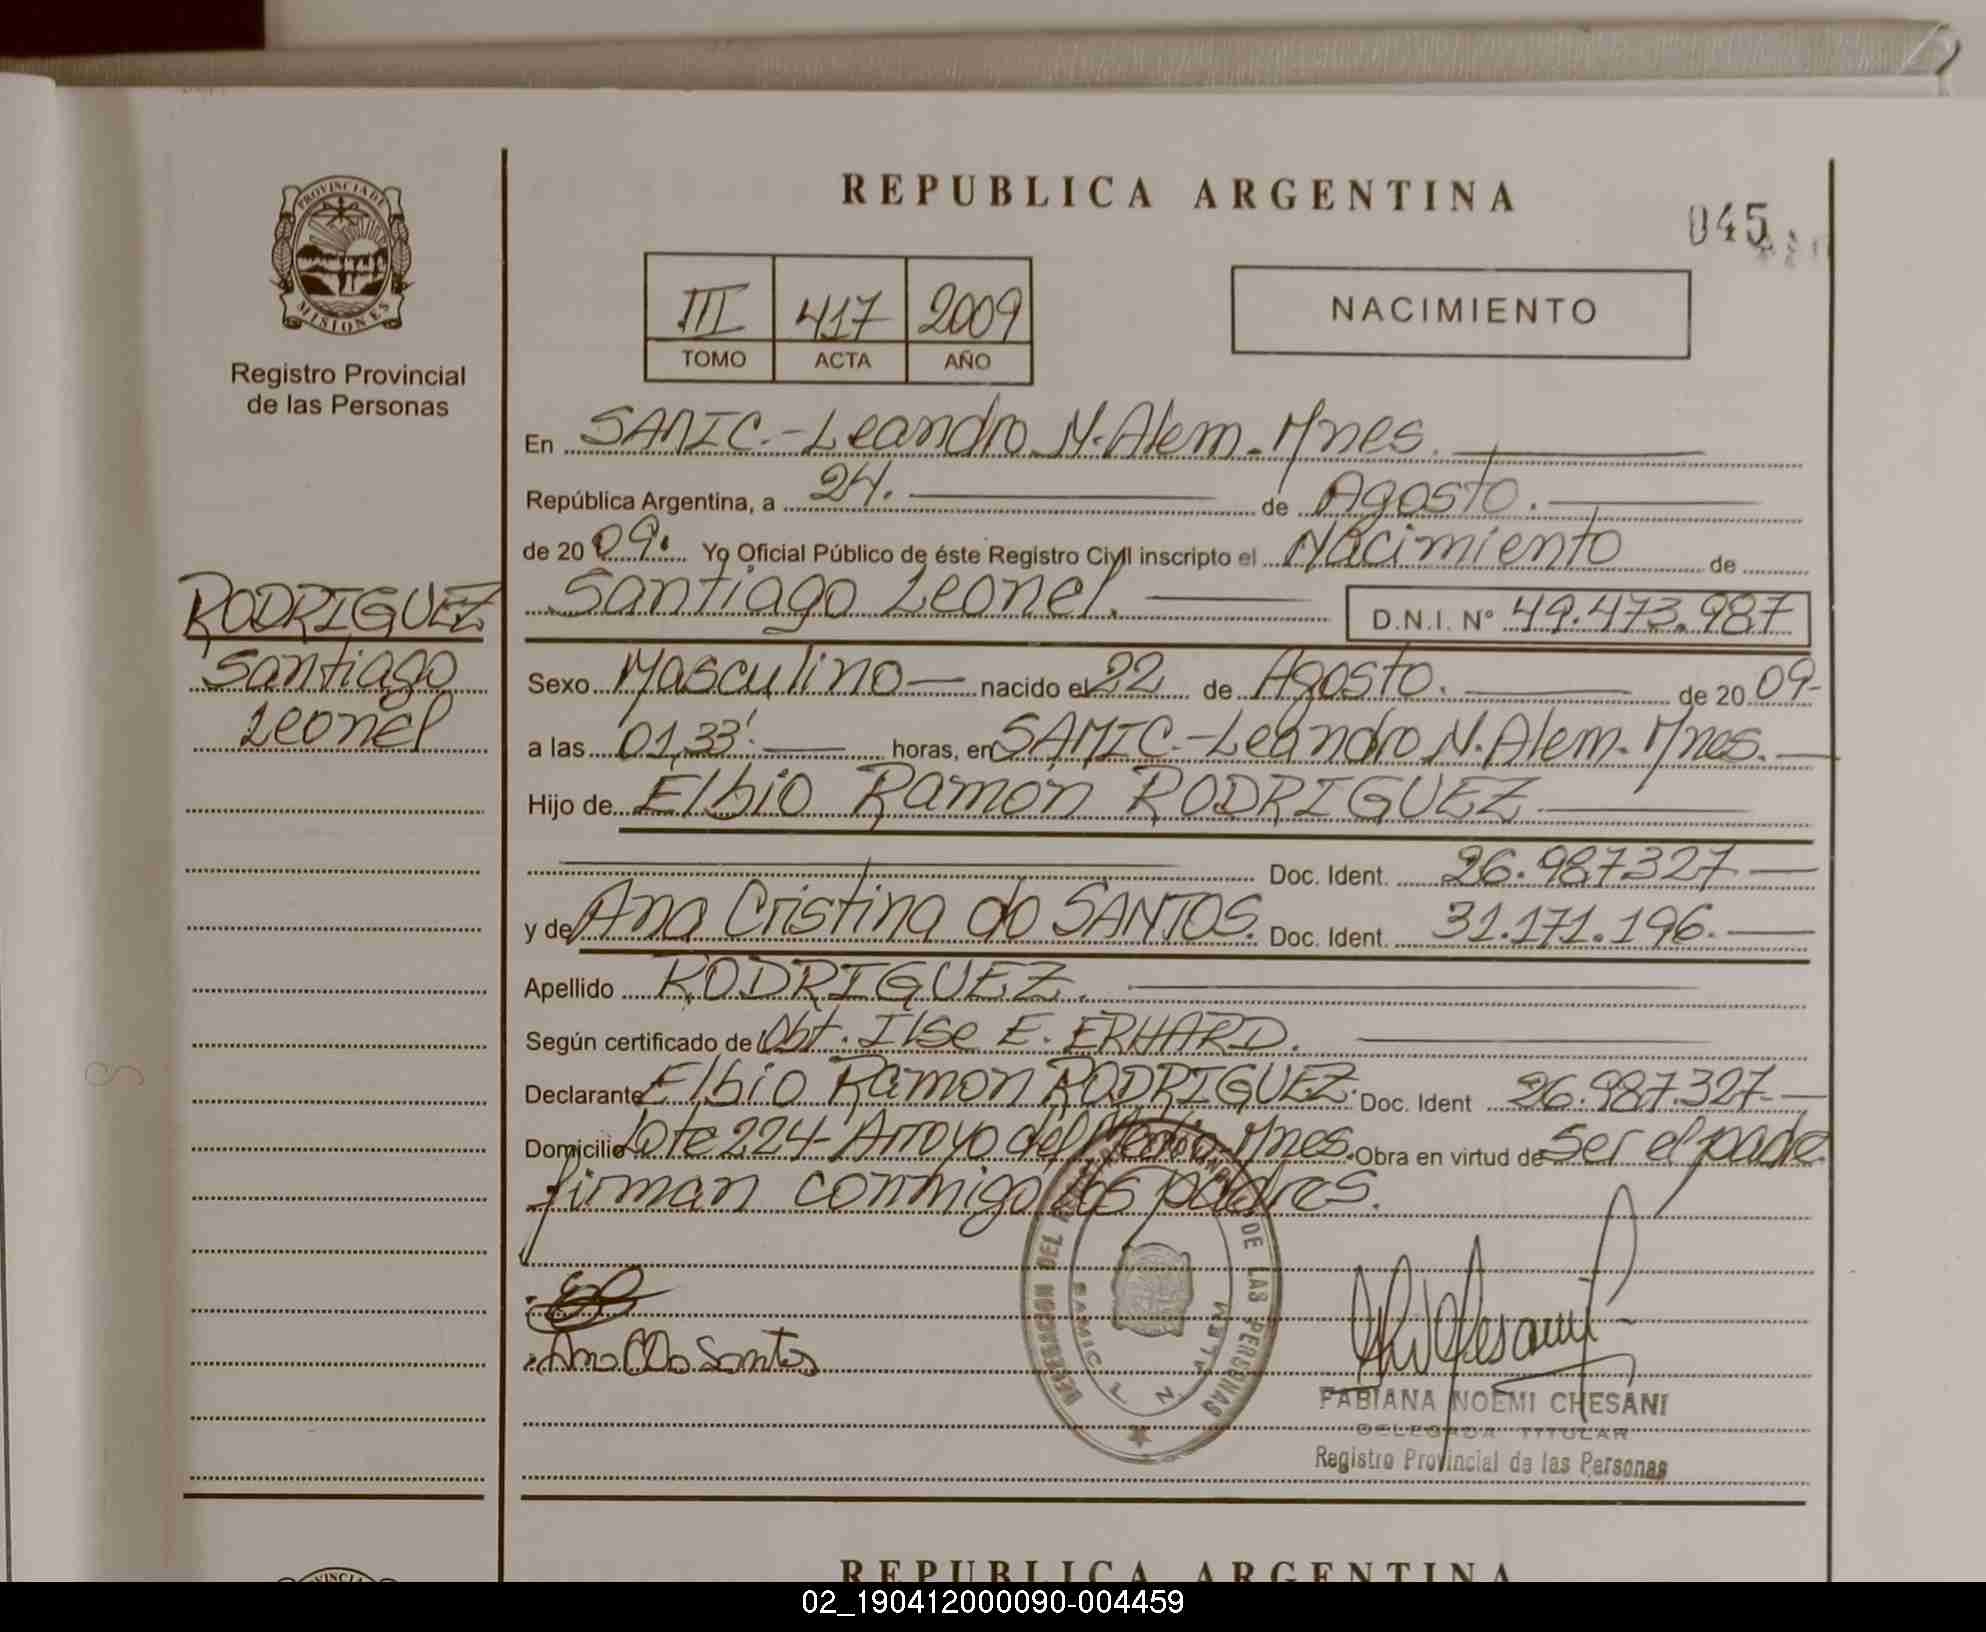 PROVINCIA DE
MISIONES
Registro Provincial
de las Personas
RODRIGUEZ
Santiago
Leonel
REPUBLICA ARGENTINA
045
III 417 2009
TOMO ACTA AÑO
NACIMIENTO
En SAMIC.-Leandro N. Alem-Mnes.
República Argentina, a 24. de Agosto.
de 2009. Yo Oficial Público de éste Registro Civil inscripto el Nacimiento de
Santiago Leonel. D.N.I. Nº 49.473.987
Sexo Masculino nacido el 22 de Agosto. de 2009-
a las 01,33'. horas, en SAMIC.-Leandro N. Alem-Mnes.
Hijo de Elbio Ramón RODRIGUEZ
Doc. Ident. 26.987.327
y de Ana Cristina do SANTOS. Doc. Ident. 31.171.196.
Apellido RODRIGUEZ.
Según certificado de Obt. Ilse E. ERHARD.
Declarante Elbio Ramon RODRIGUEZ. Doc. Ident 26.987.327-
Domicilio Lote 224-Arroyo del Medio-Mnes. Obra en virtud de ser el padre
firman conmigo los padres.
Ana C Do Santos
DE LAS PERSONAS
SAMIC L. N. ALEM
FABIANA NOEMI CHESANI
DELEGADA TITULAR
Registro Provincial de las Personas
REPUBLICA ARGENTINA
02_190412000090-004459